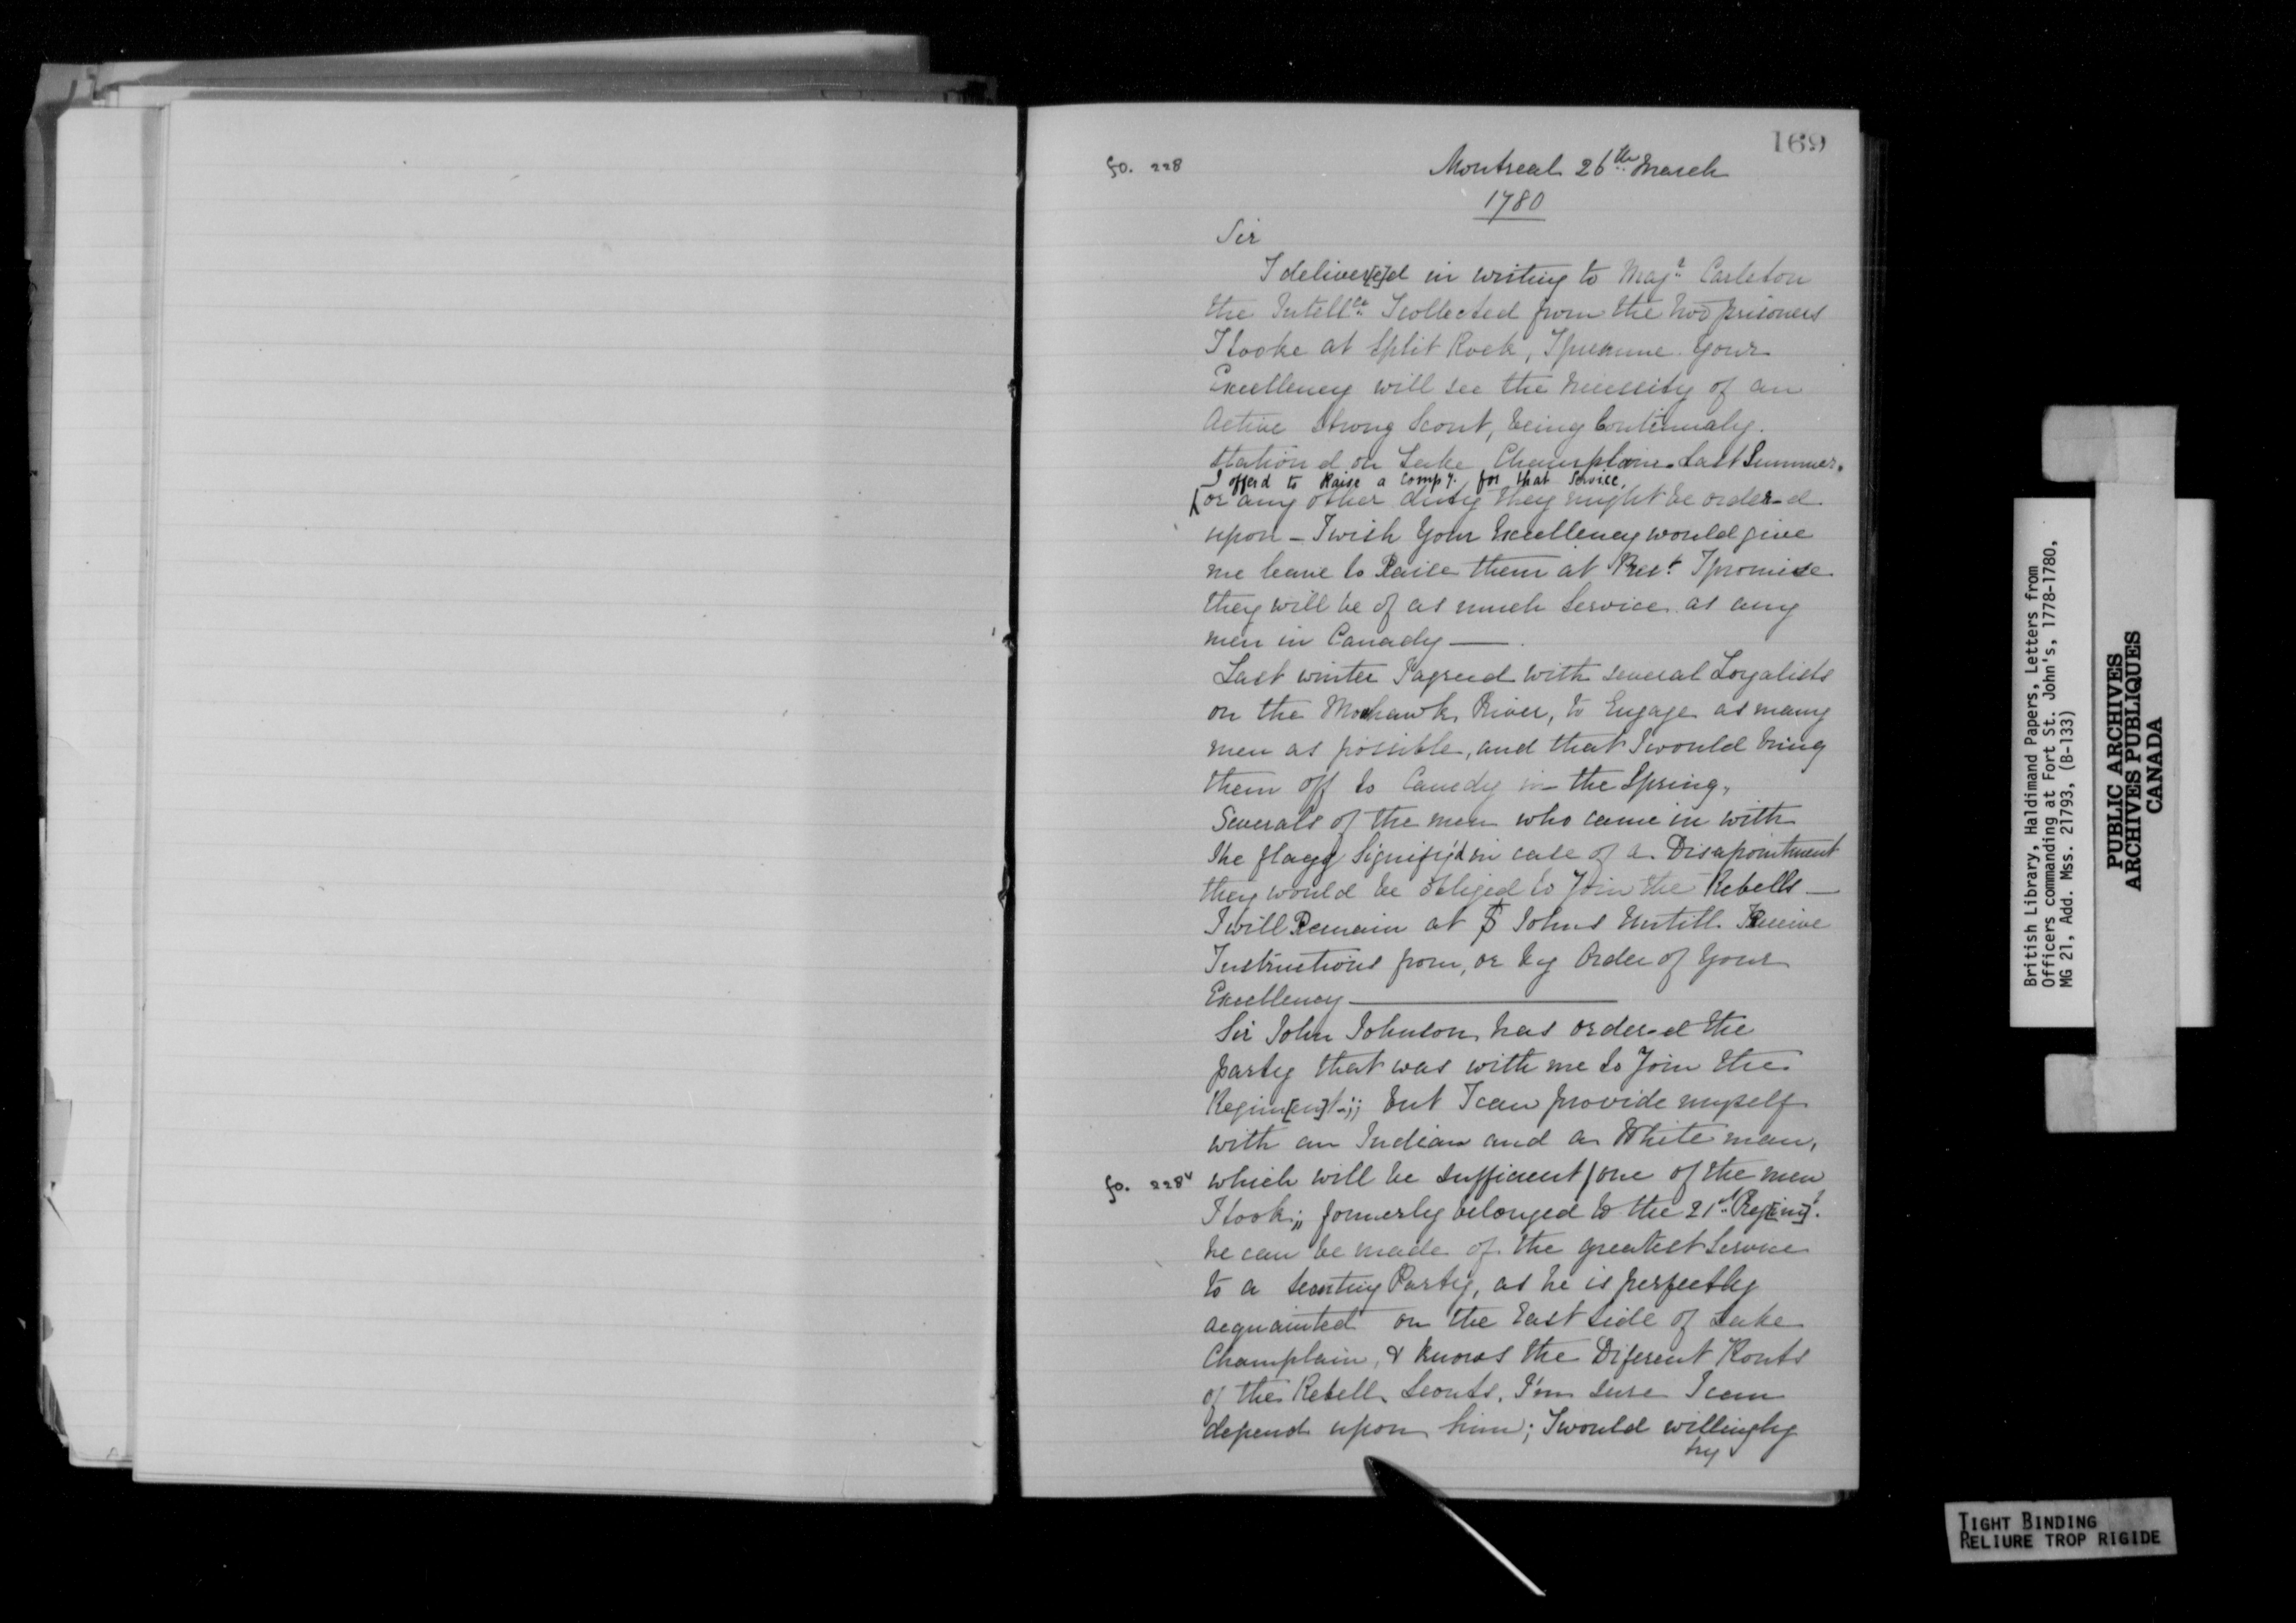 169
fo. 228
Montreal 26th March
1780
Sir
I deliver[e]d in writing to Majr Carleton
the Intellce I collected from the two prisoners
I tooke at Split Rock, I presume Your
Excellency will see the necessity of an
Active Strong Scout, being Continualy
station d on Lake Champlain. Last Summer.
I offerd to Raise a Compy. for that Service,
or any other duty they might be order-d
upon - I wish Your Excellency would give
me leave to Raise them at Prest I promise
they will be of as much Service as any
men in Canady —
Last winter I agreed with several Loyalists
on the Mohawk River, to Engage as many
men as possible, and that I would bring
them off to Canedy in the Spring,
Severals of the men who came in with
the flagg Signify'd in case of a Disapointment
they would be obliged to Join the Rebells —
I will Remain at St Johns Untill I Receive
Instructions from, or by Order of Your
Excellency —
Sir John Johnson has order-d the
party that was with me to Join the
Regim[en]t;; but I can provide myself
with an Indian and a White man,
fo. 228v which will be sufficient / one of the men
I took;, formerly belonged to the 21st Reg[im]t.
he can be made of the greatest Service
to a Scouting Party, as he is perfectly
acquainted on the East side of Lake
Champlain, & knows the Diferent Routs
of the Rebell Scouts. I'm sure I can
depend upon him; I would willingly
try
British Library, Haldimand Papers, Letters from
Officers commanding at Fort St. John's, 1778-1780,
MG 21, Add. Mss. 21793, (B-133)
PUBLIC ARCHIVES
ARCHIVES PUBLIQUES
CANADA
TIGHT BINDING
RELIURE TROP RIGIDE